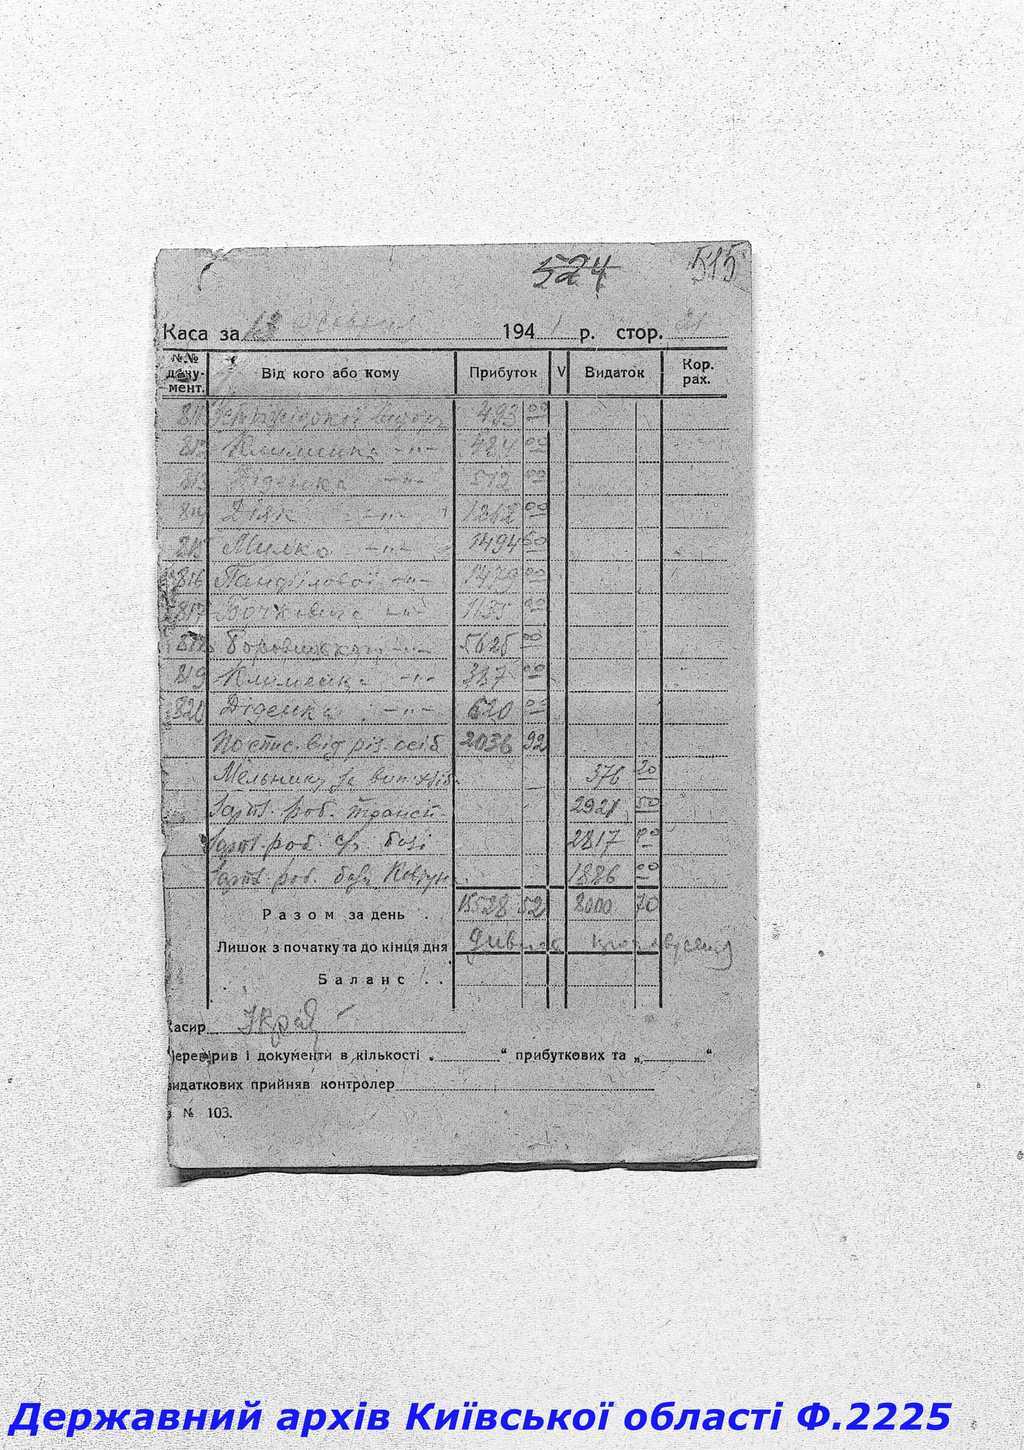 524 515
Каса за 13 194 1 р. стор. 21
№№ доку- мент. Від кого або кому Прибуток V Видаток Кор. рах.
811 493 00
812 Клименка -"- 484 00
813 Діденка -"- 512 00
814 Дяк -"- 00
815 Милко -"- 1494 60
816 Панфілової -"- 1479 00
817 -"- 1135 00
818 -"- 5625
819 Клименка -"- 387 00
820 Діденка -"- 620 00
Поступ. від різ. осіб 2036 92
Мельнику за 376 20
Зарпл. роб. трансп. 2921 50
Зарпл. роб. базі 2817 00
Зарпл. роб. бази 1886 00
Разом за день 15528 52 8000 70
Лишок з початку та до кінця дня
Баланс
Касир
Перевірив і документи в кількості „ “ прибуткових та „ “
видаткових прийняв контролер
№ 103.
Державний архів Київської області Ф.2225